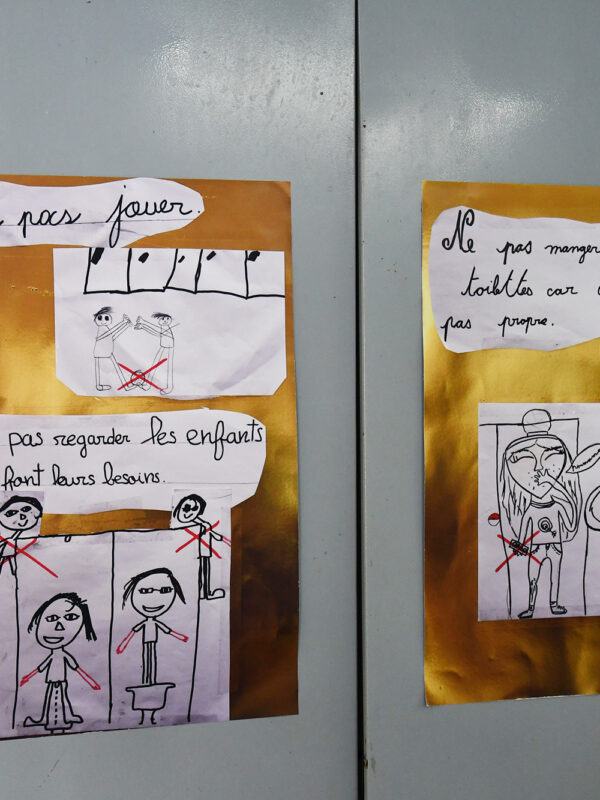 pas jouer.
pas regarder les enfants
font leurs besoins.
Ne pas manger
toilettes car
pas propre.